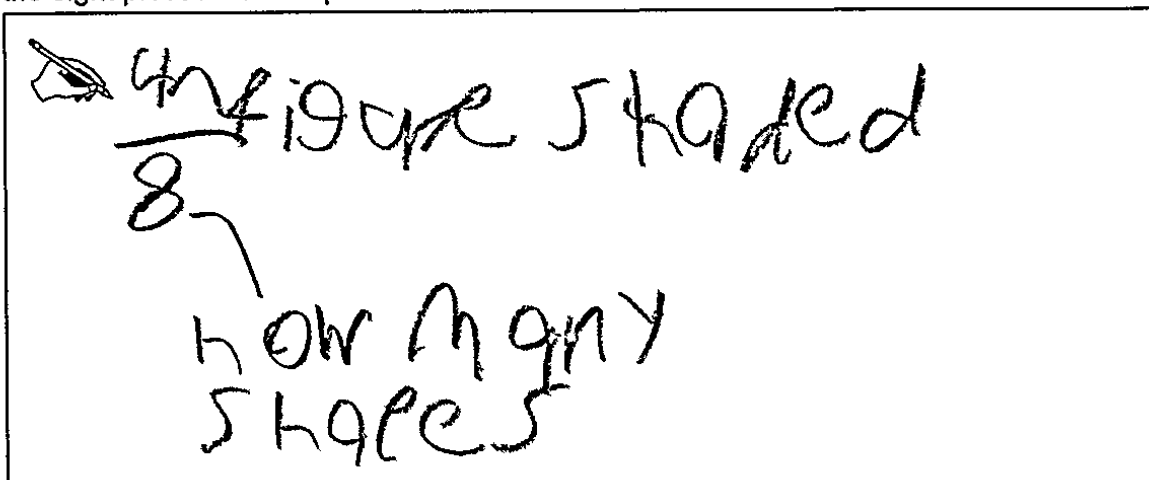 4 figure shaded
8
how many
shapes